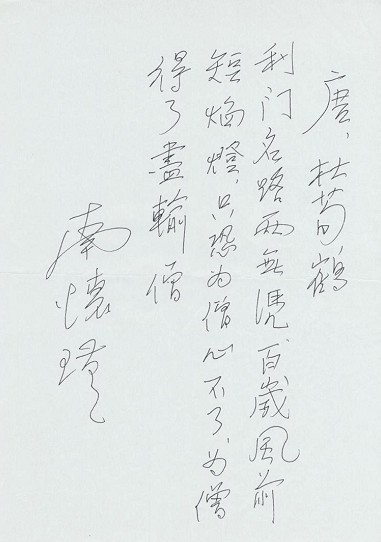 唐、杜荀鶴
利门名路两無憑、百歲風前
短焰燈、只恐为僧心不了、为僧
得了盡輸僧
南懷瑾